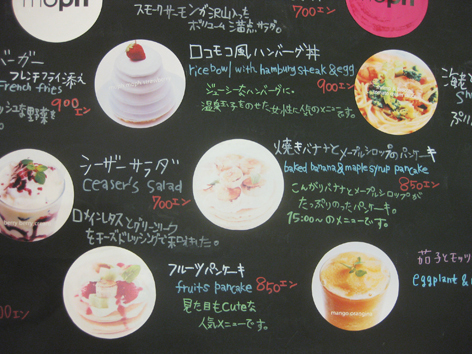 moph
moph
スモークサーモンが沢山入った
ボリューム満点サラダ。
700エン
バーガー
フレンチフライ添え
french fries
900エン
ロコモコ風ハンバーグ丼
rice bowl with hamburg steak & egg
900エン
ジューシーなハンバーグに
温泉玉子をのせた女性に人気のメニューです。
シーザーサラダ
Ceaser's Salad
700エン
ロメインレタスとグリーンリーフ
をチーズドレッシングで和えました。
焼きバナナとメープルシロップのパンケーキ
baked banana & maple syrup pancake
850エン
こんがりバナナとメープルシロップが
たっぷりのったパンケーキ。
15:00〜のメニューです。
フルーツパンケーキ
fruits pancake 850エン
見た目もcuteな
人気メニューです。
茄子とモッツ
eggplant &